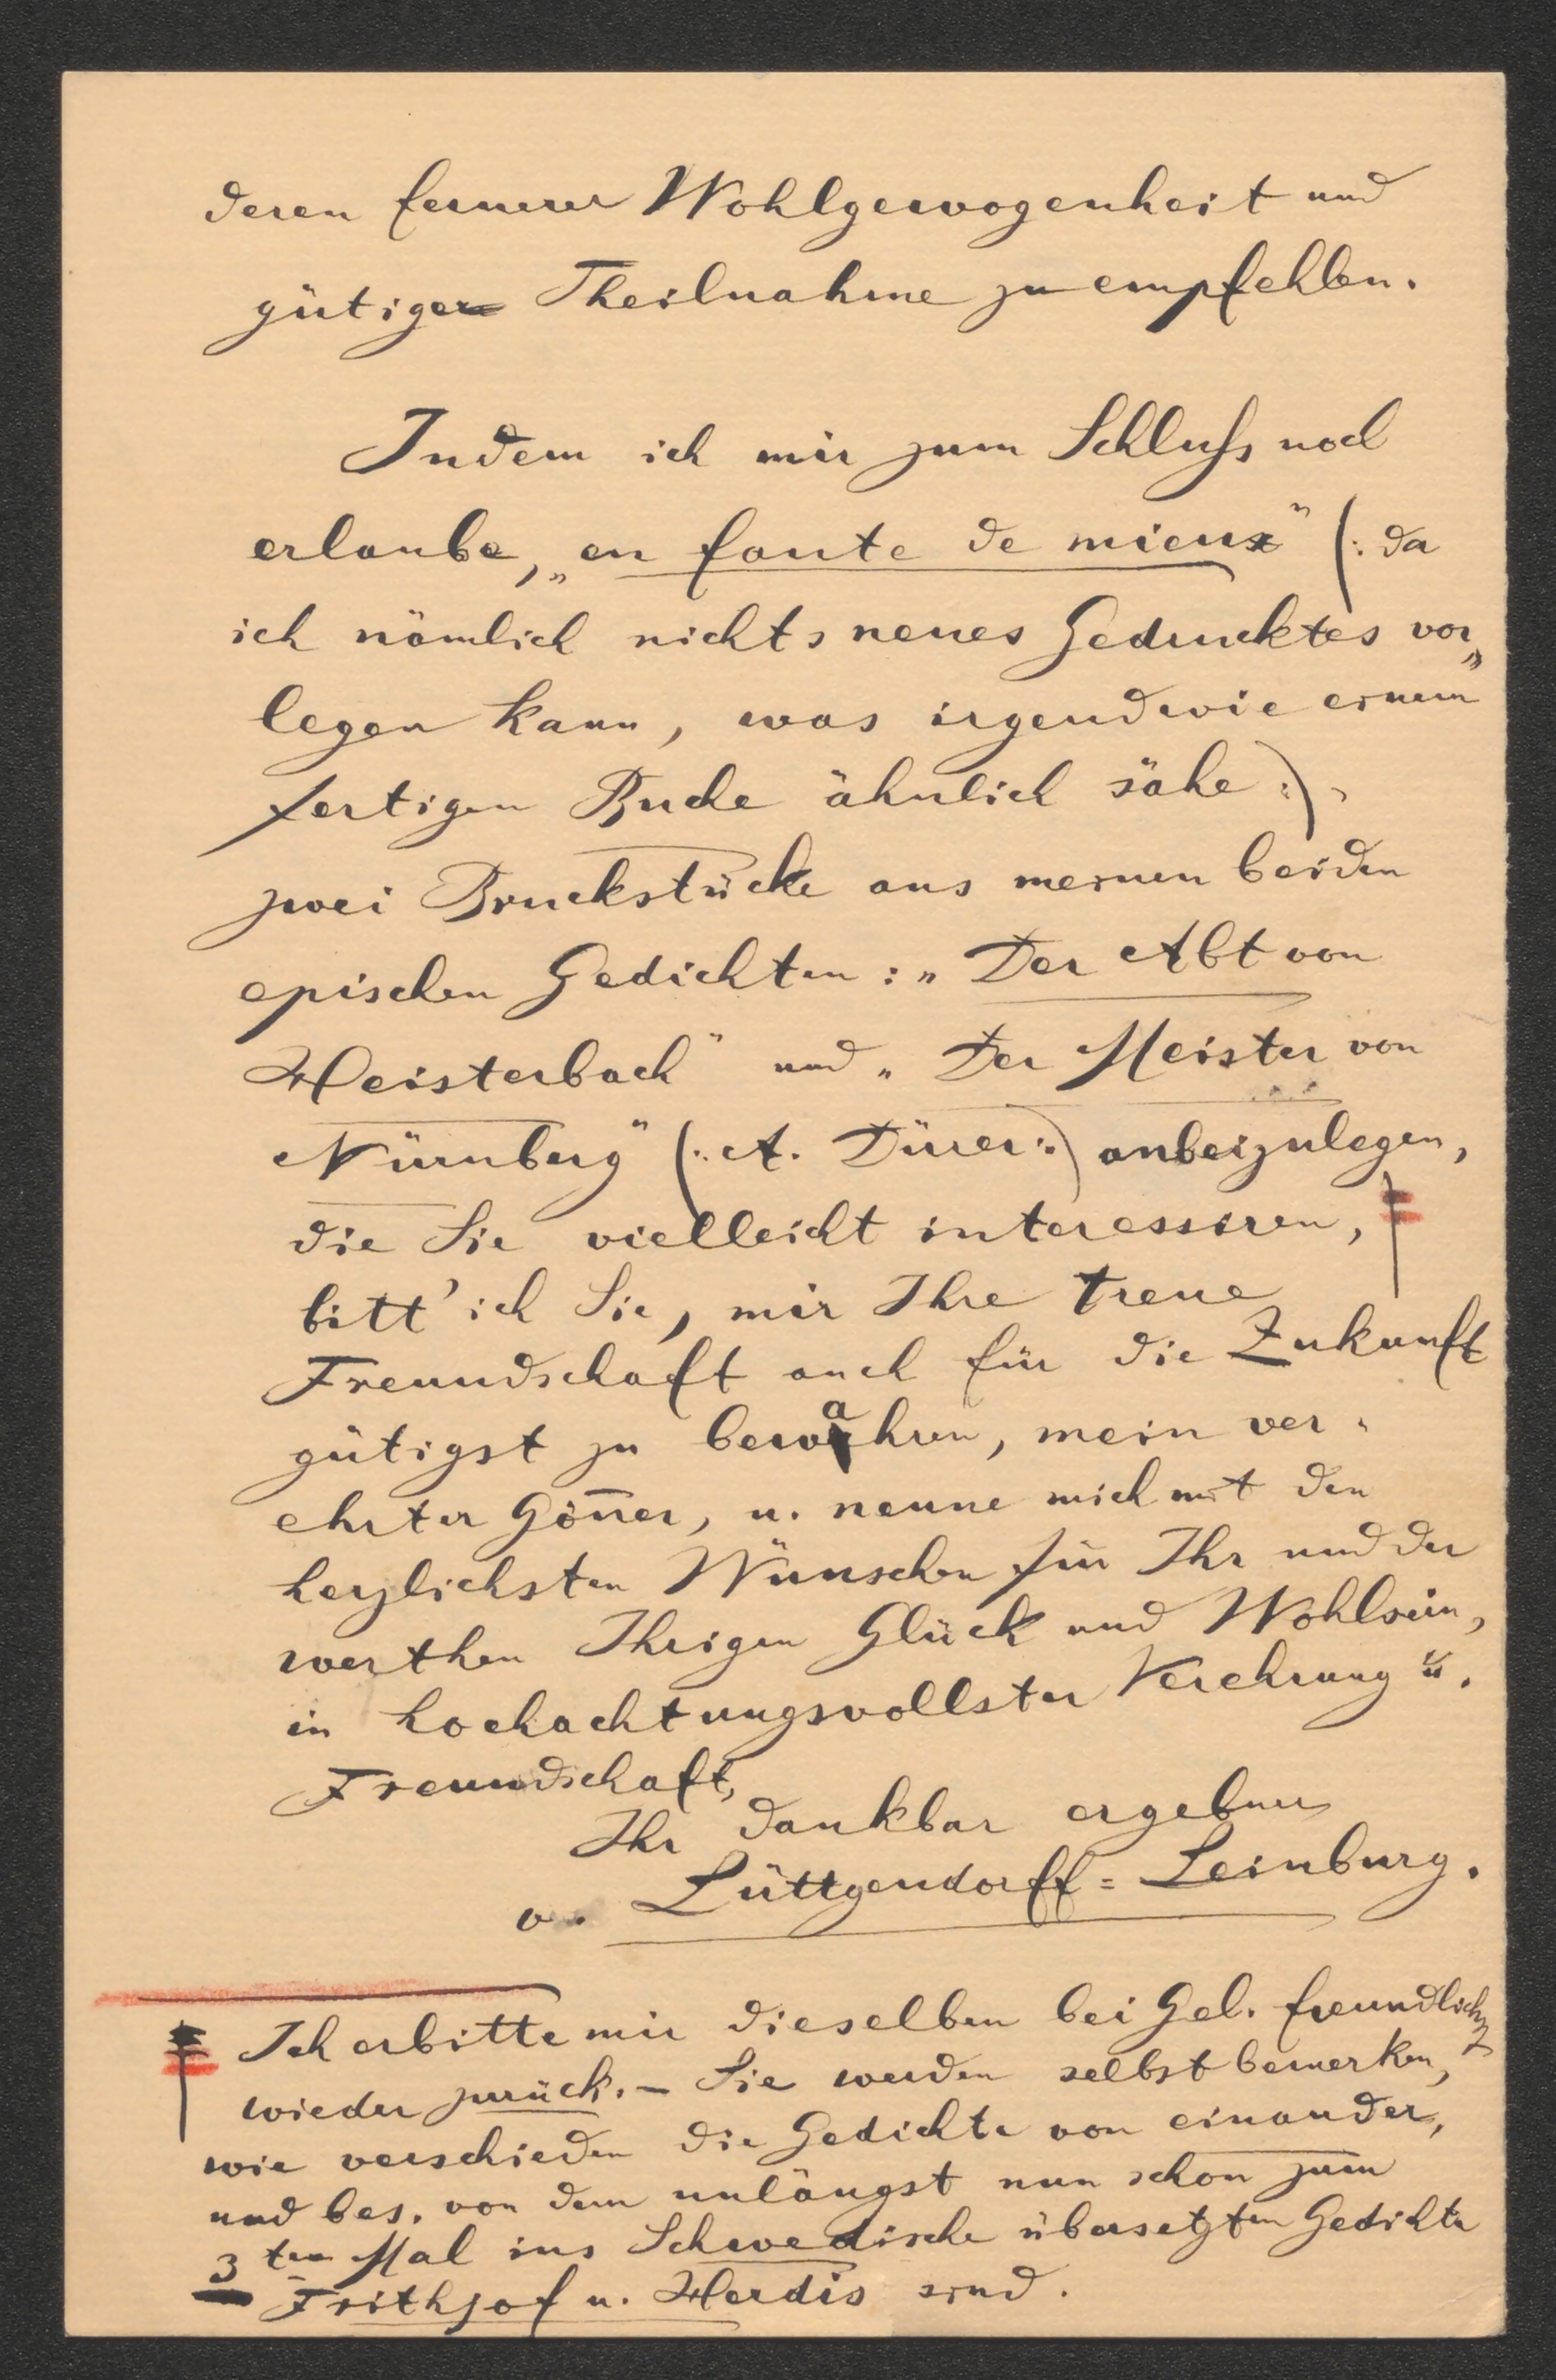 deren fernerer Wohlgewogenheit und
gütiger Theilnahme zu empfehlen.
Indem ich mir zum Schluß noch
erlaube, „en faute de mieux" (: da
ich nämlich nichts neues Gedrucktes vor„
legen kann, was irgendwie einem
fertigen Buche ähnlich sähe :),
zwei Bruchstücke aus meinen beiden
epischen Gedichten: „Der Abt von
Heisterbach" und „Der Meister von
Nürnberg" (: A. Dürer :) anbeizulegen,
die Sie vielleicht interessiren,
bitt' ich Sie, mir Ihre treue
Freundschaft auch für die Zukunft
gütigst zu bewahren, mein ver-
ehrter Gön̄er, u. nenne mich mit den
herzlichsten Wünschen für Ihr und der
werthen Ihrigen Glück und Wohlsein,
in hochachtungsvollster Verehrung u.
Freundschaft,
Ihr dankbar ergebner
v. Lüttgendorff=Leinburg.
Ich erbitte mir dieselben bei Gel. freundlichst
wieder zurück. – Sie werden selbst bemerken,
wie verschieden die Gedichte von einander,
und bes. von dem unlängst nun schon zum
3ten Mal ins Schwedische übersetzten Gedichte
Frithjof u. Herdis sind.